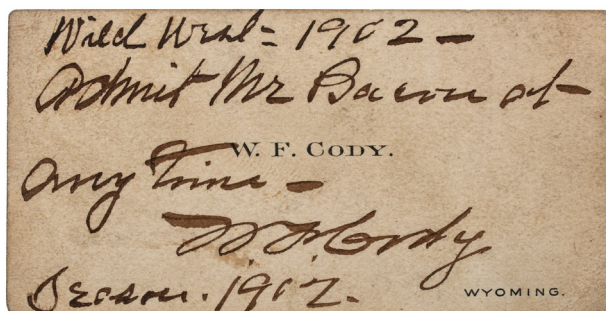 Wild West = 1902 —
Admit Mr Bacon at
W. F. CODY.
any time —
W F Cody
Season. 1902.
WYOMING.